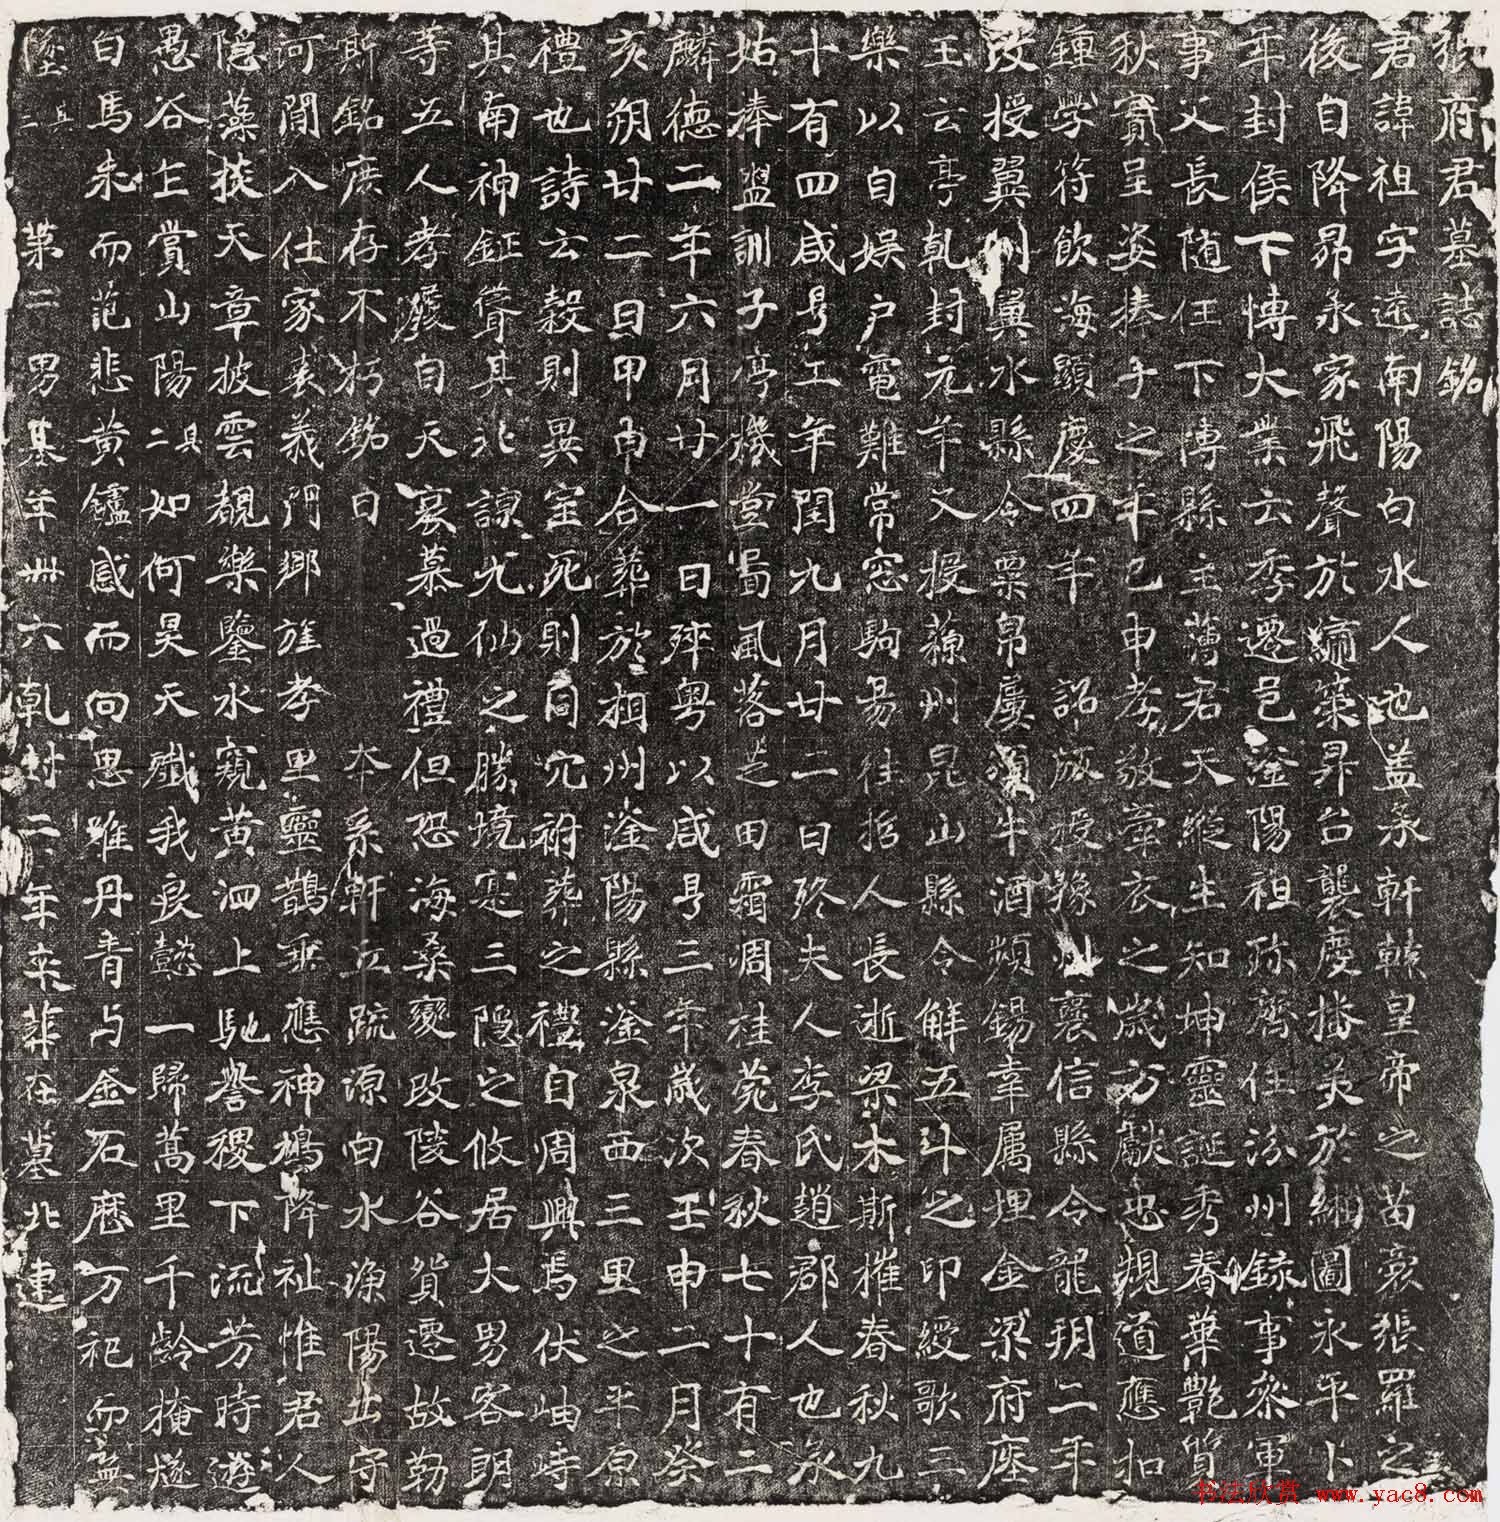 張府君墓誌銘
君諱祖字遠南陽白水人也盖承軒轅皇帝之苗裔張羅之
後自降昴承家飛聲於緗築昇台襲慶播美於緗圖永平卜
年封侯下愽大業云季遷邑滏陽祖珎齊任汾州錄事叅軍
事父長隨任下愽縣主薄君天縱生知坤靈誕秀春華艷質
秋實呈姿捧手之年已申孝敬牽衣之歲方獻忠規道應扣
鍾學符飲海顯慶四年 詔版授豫州襄信縣令龍朔二年
改授翼州翼水縣令粟帛屢頒牛酒頻錫辜属埋金梁府座
王云亭乹封元年又授蘇州昆山縣令解五斗之印綬歌三
樂以自娯戶電難常窓駒易往招人長逝梁木斯摧春秋九
十有四咸亨二年閏九月廿二日終夫人李氏趙郡人也泳
姑捧盥訓子亭機堂萱風落芝田霜凋桂菀春秋七十有二
麟德二年六月廿一日殡粤以咸亨三年歲次壬申二月癸
亥朔廿二日甲申合葬於相州滏陽縣滏泉西三里之平原
禮也詩云穀則異室死則同穴祔葬之禮自周興焉伏岫峙
其南神鉦聳其北諒九仙之勝境寔三隱之攸居大男客朗
等五人孝感自天哀慕過禮但恐海桑變改陵谷貿遷故勒
斯銘庶存不朽銘曰 本系軒丘疏源白水漁陽出守
河間入仕家表義門鄉旌孝里靈鵲垂應神鳩降祉惟君人
隱藻掞天章披雲覩樂鑒水窺黄泗上馳譽稷下流芳時遊
愚谷乍賞山陽其二如何昊天殲我良懿一歸蒿里千齡掩燧
白馬朱而范悲黄鑪感而向思雖丹青与金石歷万祀而
墜其三 第二男基年卅六乹封二年来葬在墓北連